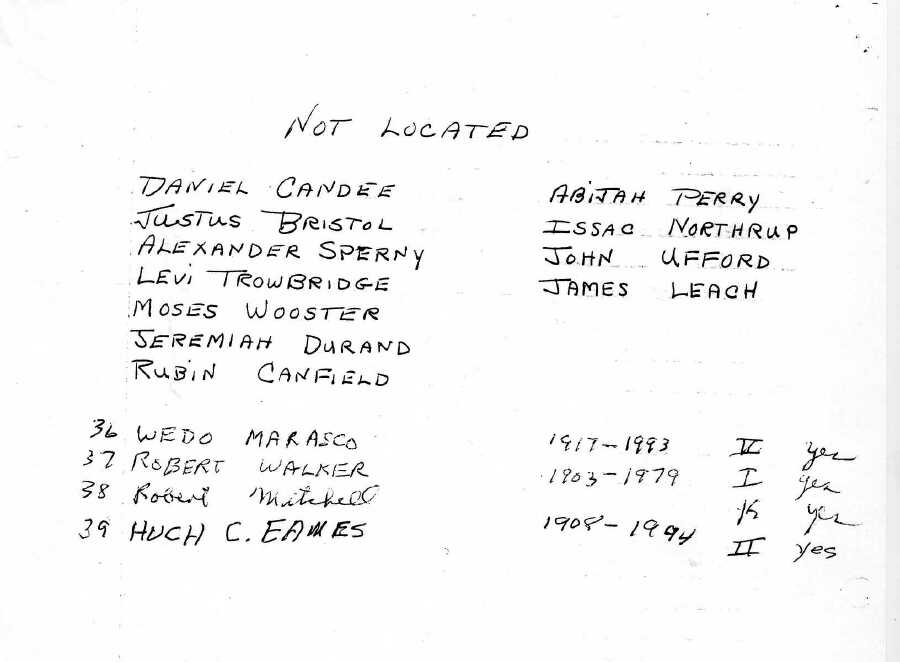 NOT LOCATED
DANIEL CANDEE
JUSTUS BRISTOL
ALEXANDER SPERNY
LEVI TROWBRIDGE
MOSES WOOSTER
JEREMIAH DURAND
RUBIN CANFIELD
ABIJAH PERRY
ISSAC NORTHRUP
JOHN UFFORD
JAMES LEACH
36 WEDO MARASCO 1917-1993 yes
37 ROBERT WALKER 1903-1979 I yes
38 Robert Mitchell K yes
39 HUGH C. EAMES 1908-1994 II yes